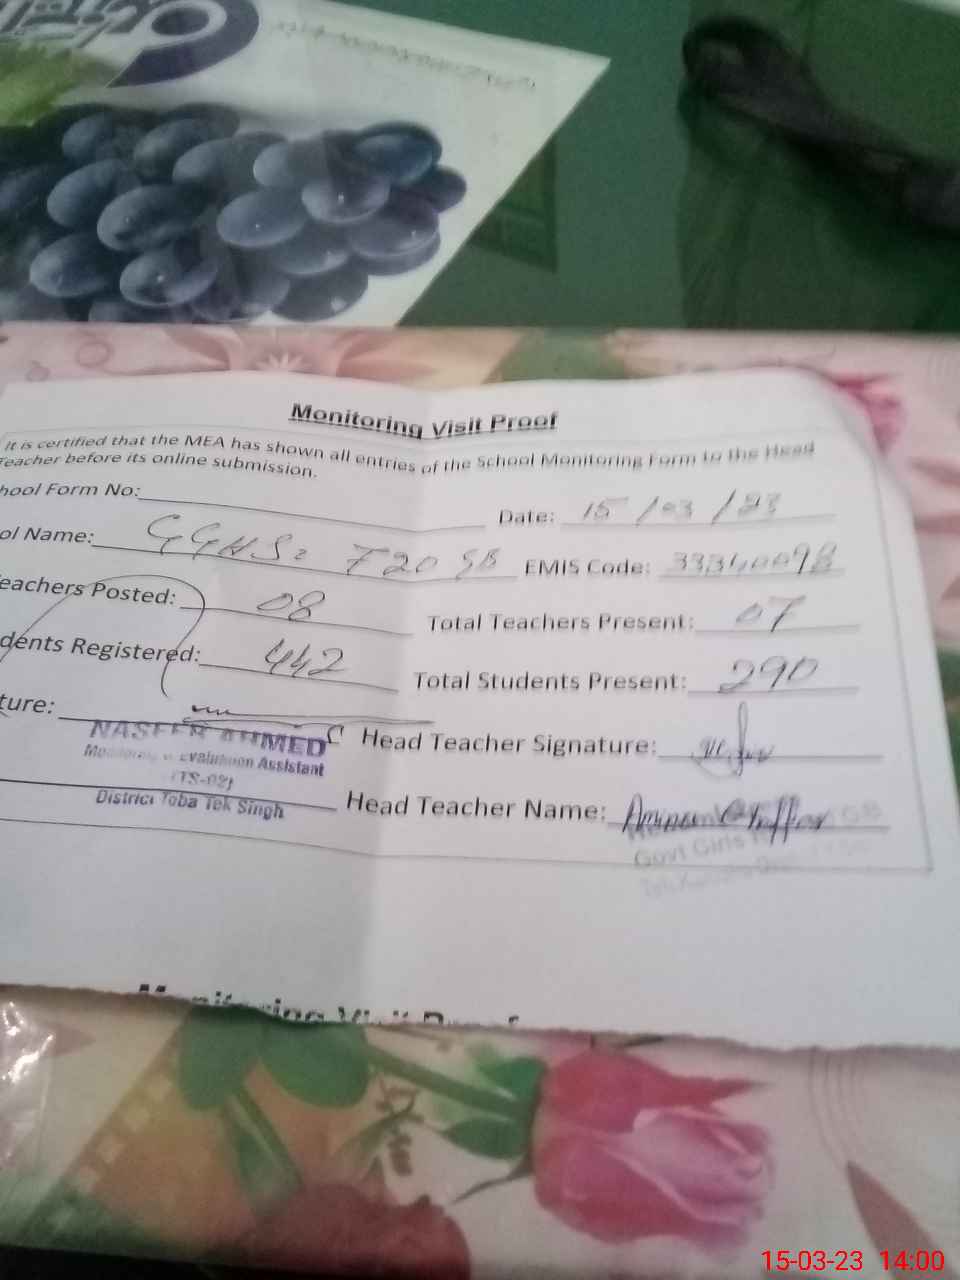 Monitoring Visit Proof
It is certified that the MEA has shown all entries of the School Monitoring Form to the Head
Teacher before its online submission.
hool Form No:
Date: 15/03/23
ol Name: GGHS: 720 GB
EMIS Code:
eachers Posted: 08
Total Teachers Present: 07
dents Registered: 442
Total Students Present: 290
ture:
Head Teacher Signature:
NASEER AHMED
Monitoring & Evaluation Assistant
(TS-02)
District Toba Tek Singh
Head Teacher Name:
Govt Girls
Monitoring Visit Proof
15-03-23 14:00